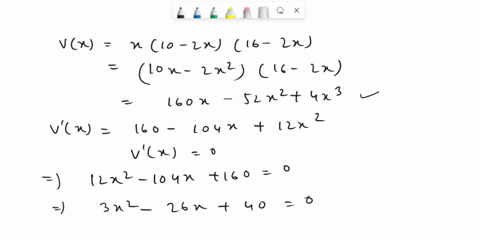 V(x) = x (10 - 2x) (16 - 2x)
= (10x - 2x²) (16 - 2x)
= 160x - 52x² + 4x³ ✓
V'(x) = 160 - 104x + 12x²
V'(x) = 0
=) 12x² - 104x + 160 = 0
=) 3x² - 26x + 40 = 0